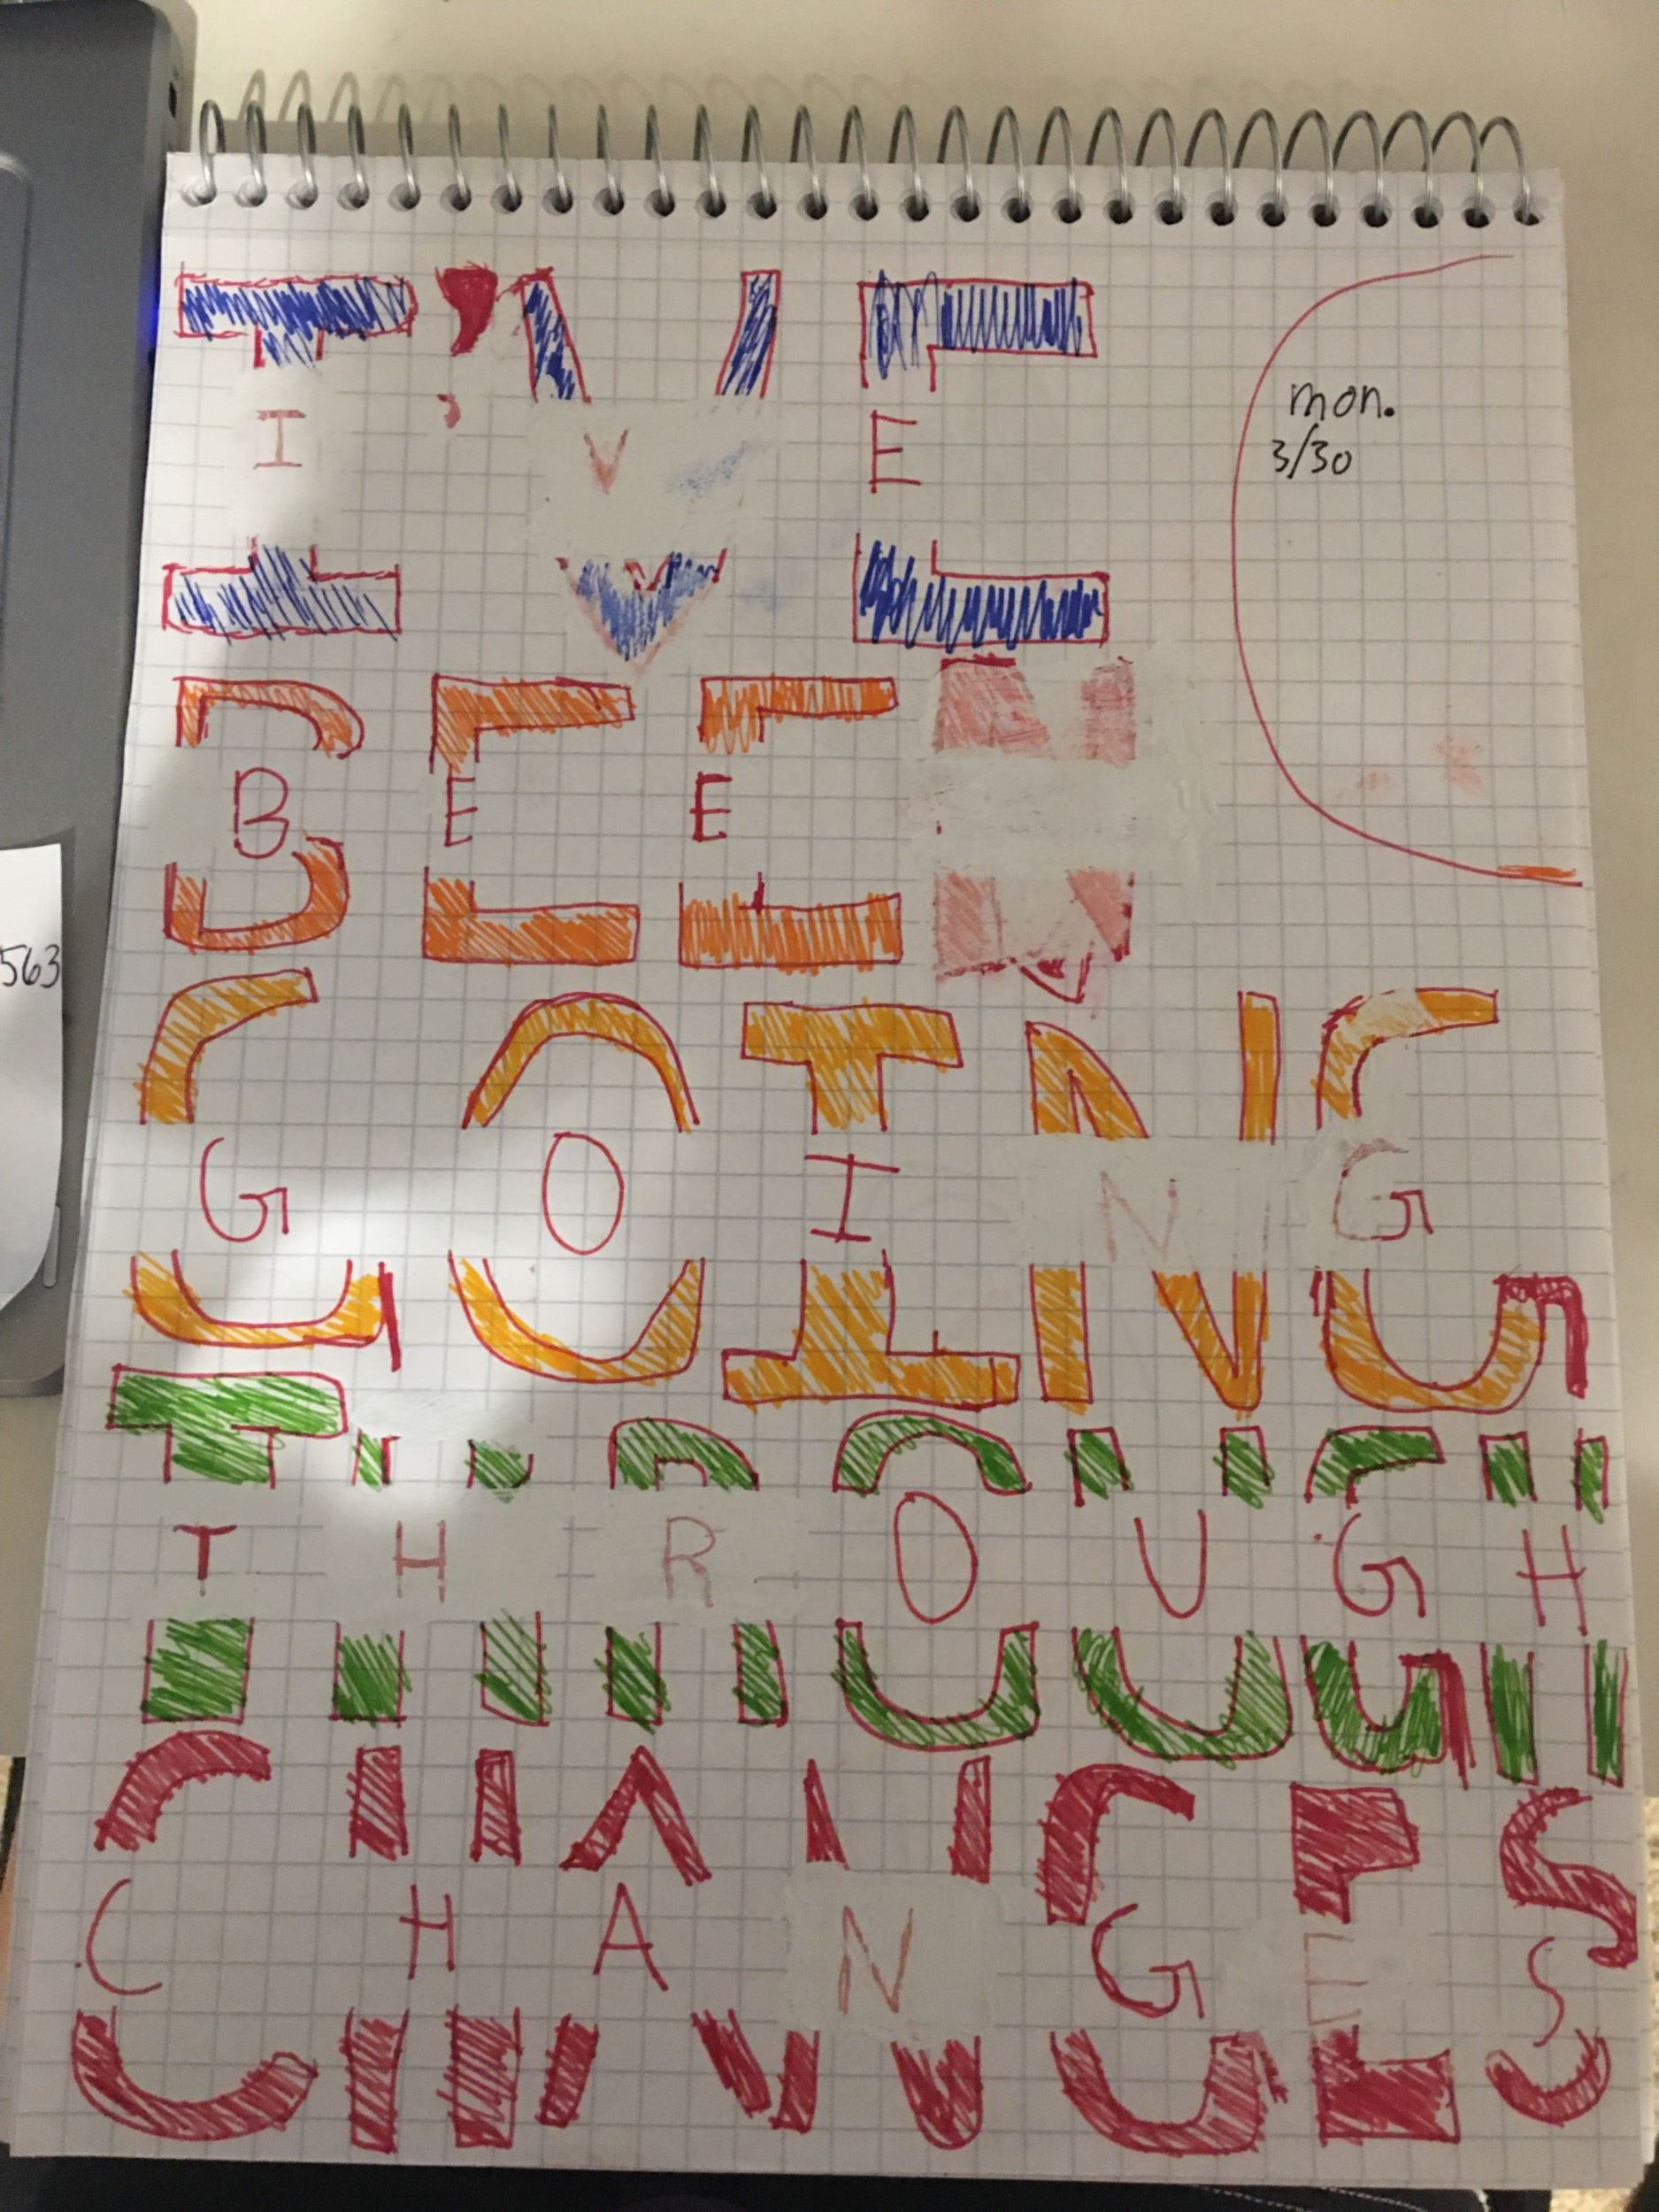 I'VE
mon.
3/30
BEEN
GOING
THROUGH
CHANGES
563